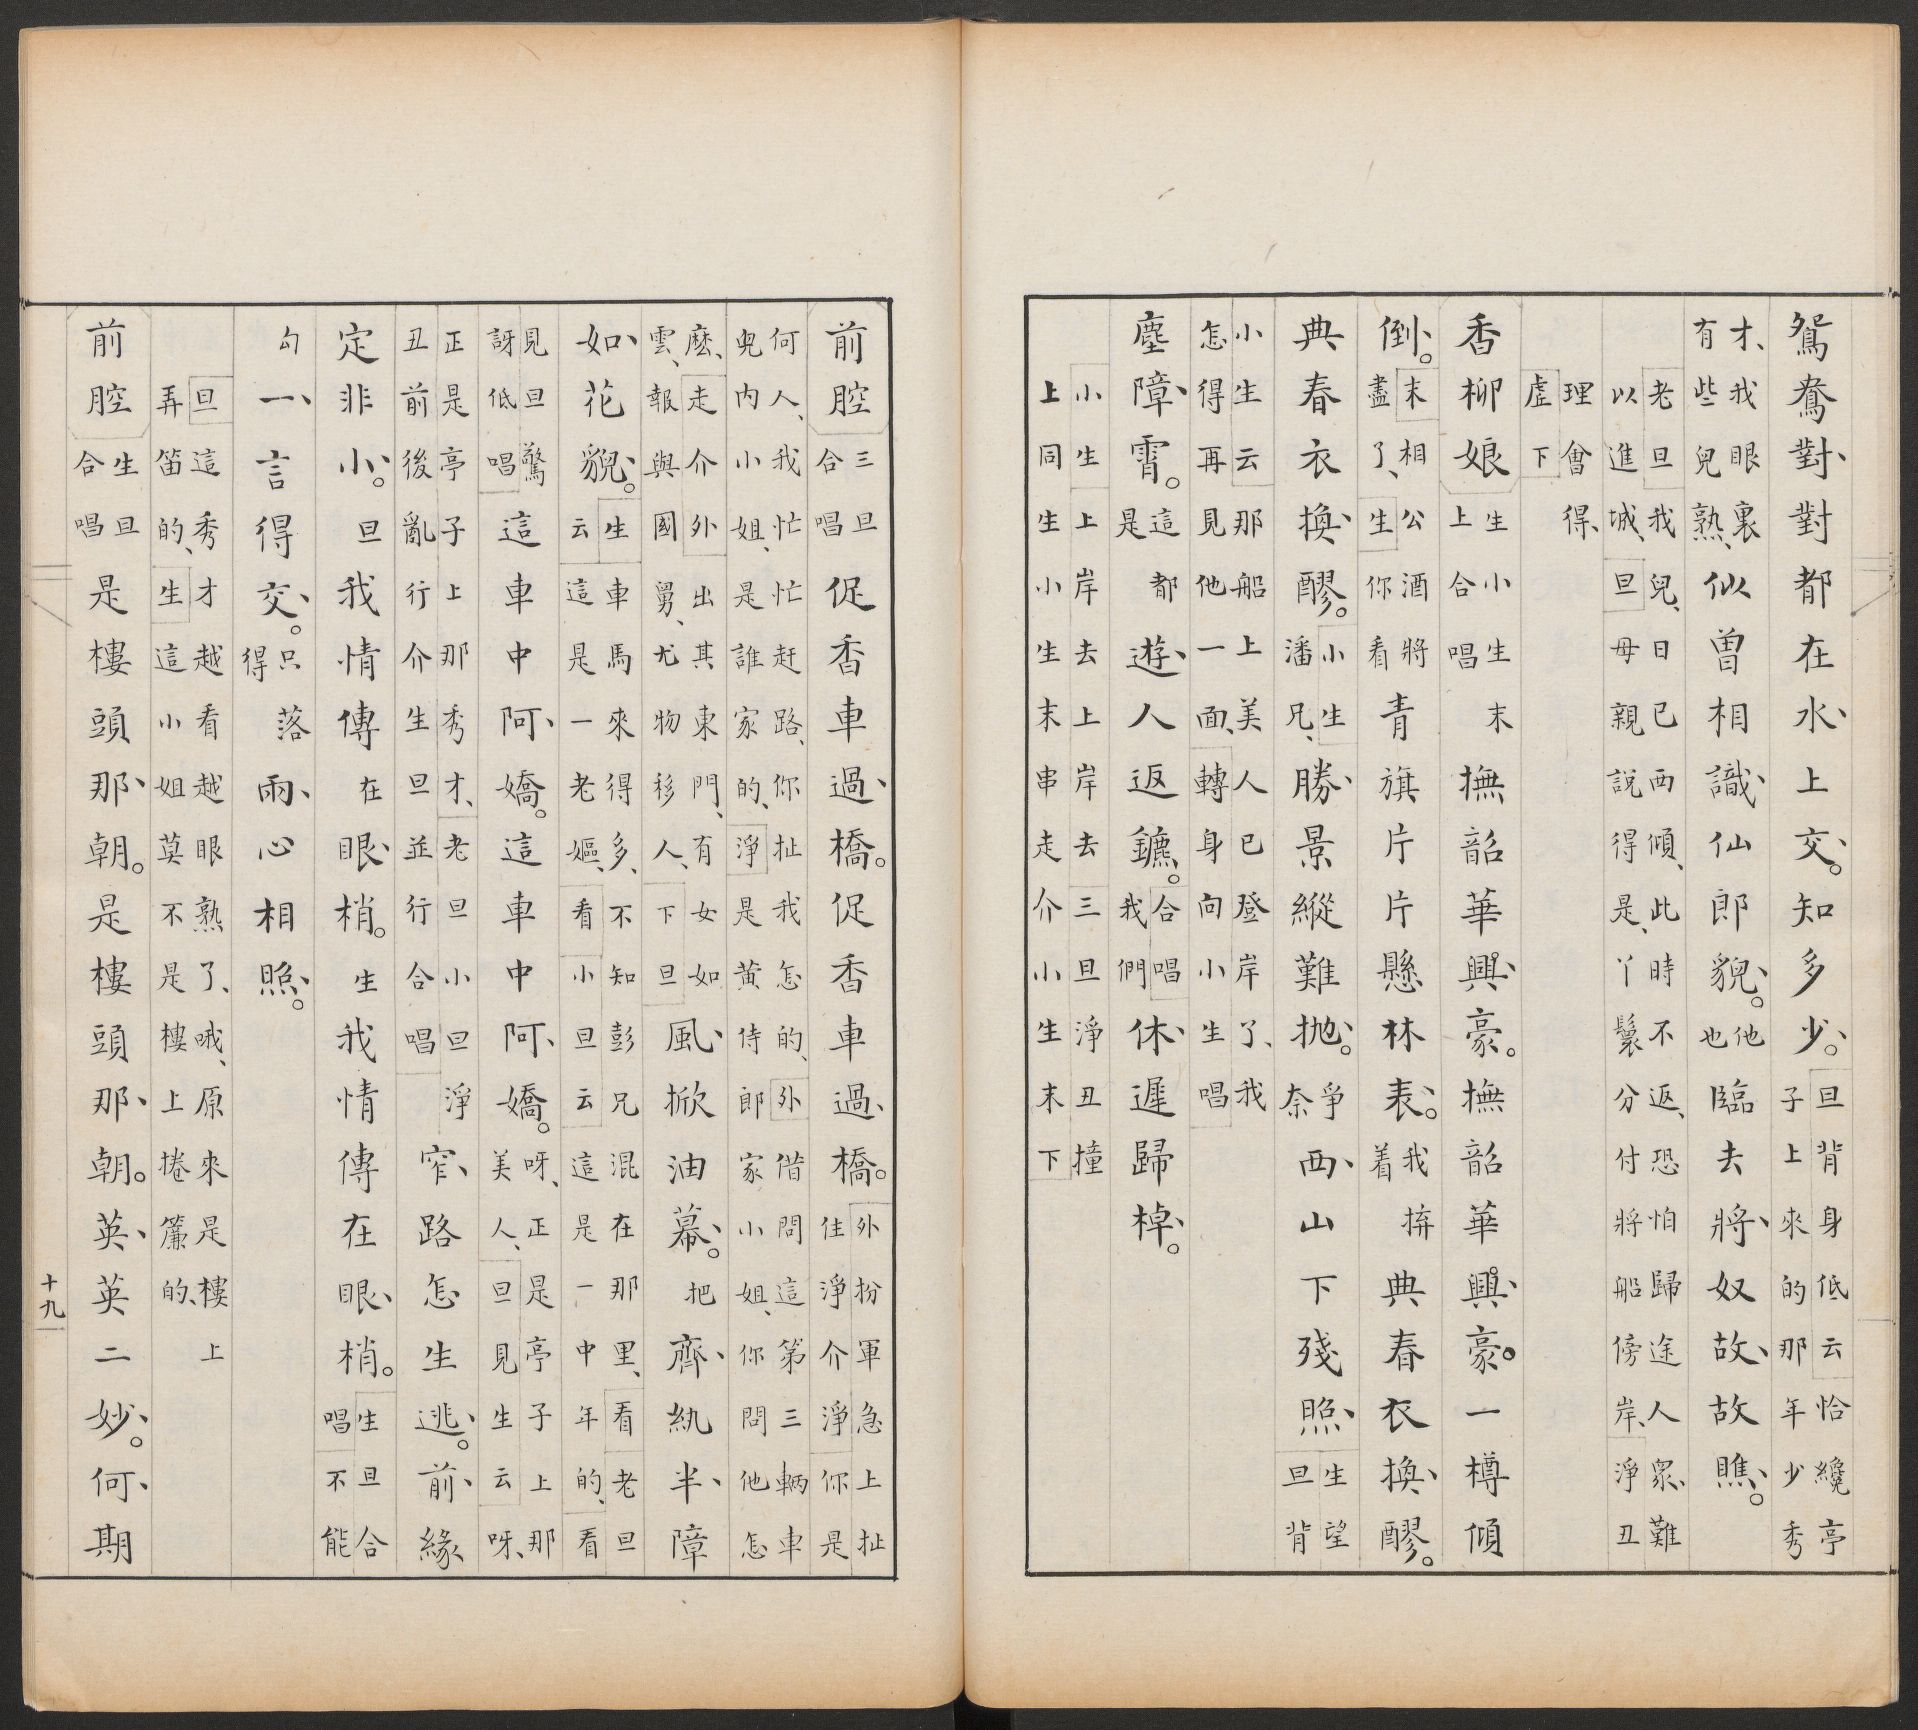 鴛鴦對對都在水上交。知多少。旦背身低云恰纔亭子上來的那年少秀
才、我眼裏有些兒熟、似曾相識仙郎貌。他也臨去將奴故故瞧。
老旦我兒、日已西傾、此時不返、恐怕歸途人衆、難以進城、旦母親說得是、丫鬟分付將船傍岸、淨丑
理會得、虛下
香柳娘生小生末上合唱撫韶華興豪。撫韶華興豪。一樽傾
倒。末相公酒將盡了、生你看青旗片片懸林表。我拚着典春衣換醪。
典春衣換醪。小生潘兄、勝景縱難拋。爭奈西山下殘照生望旦背
小生云那船上美人已登岸了、我怎得再見他一面、轉身向小生唱
塵障霄。這是都遊人返鑣。合唱我們休遲歸棹。
小生上岸去上岸去三旦淨丑撞上同生小生末串走介小生末下
前腔三旦合唱促香車過橋。促香車過橋。外扮軍急上扯住淨介淨你是
何人、我忙忙赶路、你扯我怎的、外借問這第三輛車兒内小姐、是誰家的、淨是黄侍郎家小姐、你問他怎
麽、走介外出其東門、有女如雲、報與國舅、尤物移人、下旦風掀油幕。把齊紈半障
如花貌。生車馬來得多、不知彭兄混在那里、看老旦云這是一老嫗、看小旦云這是一中年的、看
見旦驚訝低唱這車中阿嬌。這車中阿嬌。呀、正是亭子上那美人、旦見生云呀、
正是亭子上那秀才、老旦小旦淨丑前後亂行介生旦並行合唱窄路怎生逃。前緣
定非小。旦我情傳在眼梢。生我情傳在眼梢。生旦合唱不能
勾一言得交。只得落兩心相照。
旦這秀才越看越眼熟了、哦、原來是樓上弄笛的、生這小姐莫不是樓上捲簾的、
前腔生旦合唱是樓頭那朝。是樓頭那朝。英英二妙。何期
十九